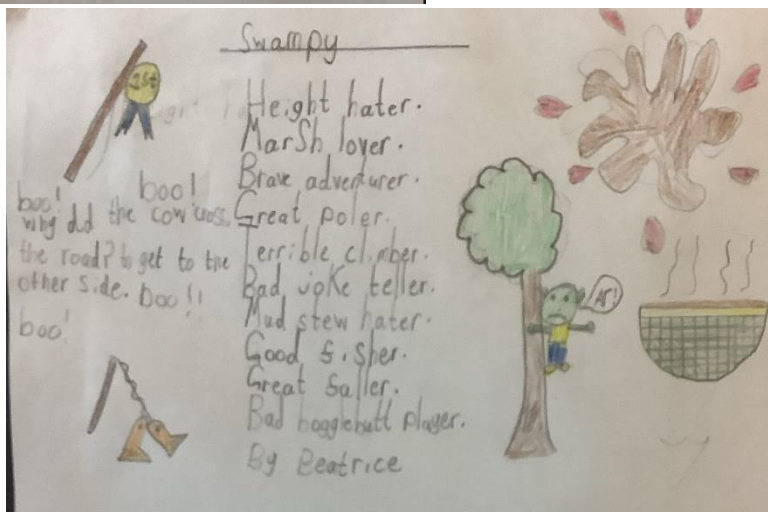 Swampy
1st
Height hater.
Marsh lover.
Brave adventurer.
Great poler.
Terrible climber.
Bad joke teller.
Mud stew hater.
Good fisher.
Great faller.
Bad bogglebutt player.
By Beatrice
boo!
boo!
why did the cow cross
the road? to get to the
other side. boo!!
boo!